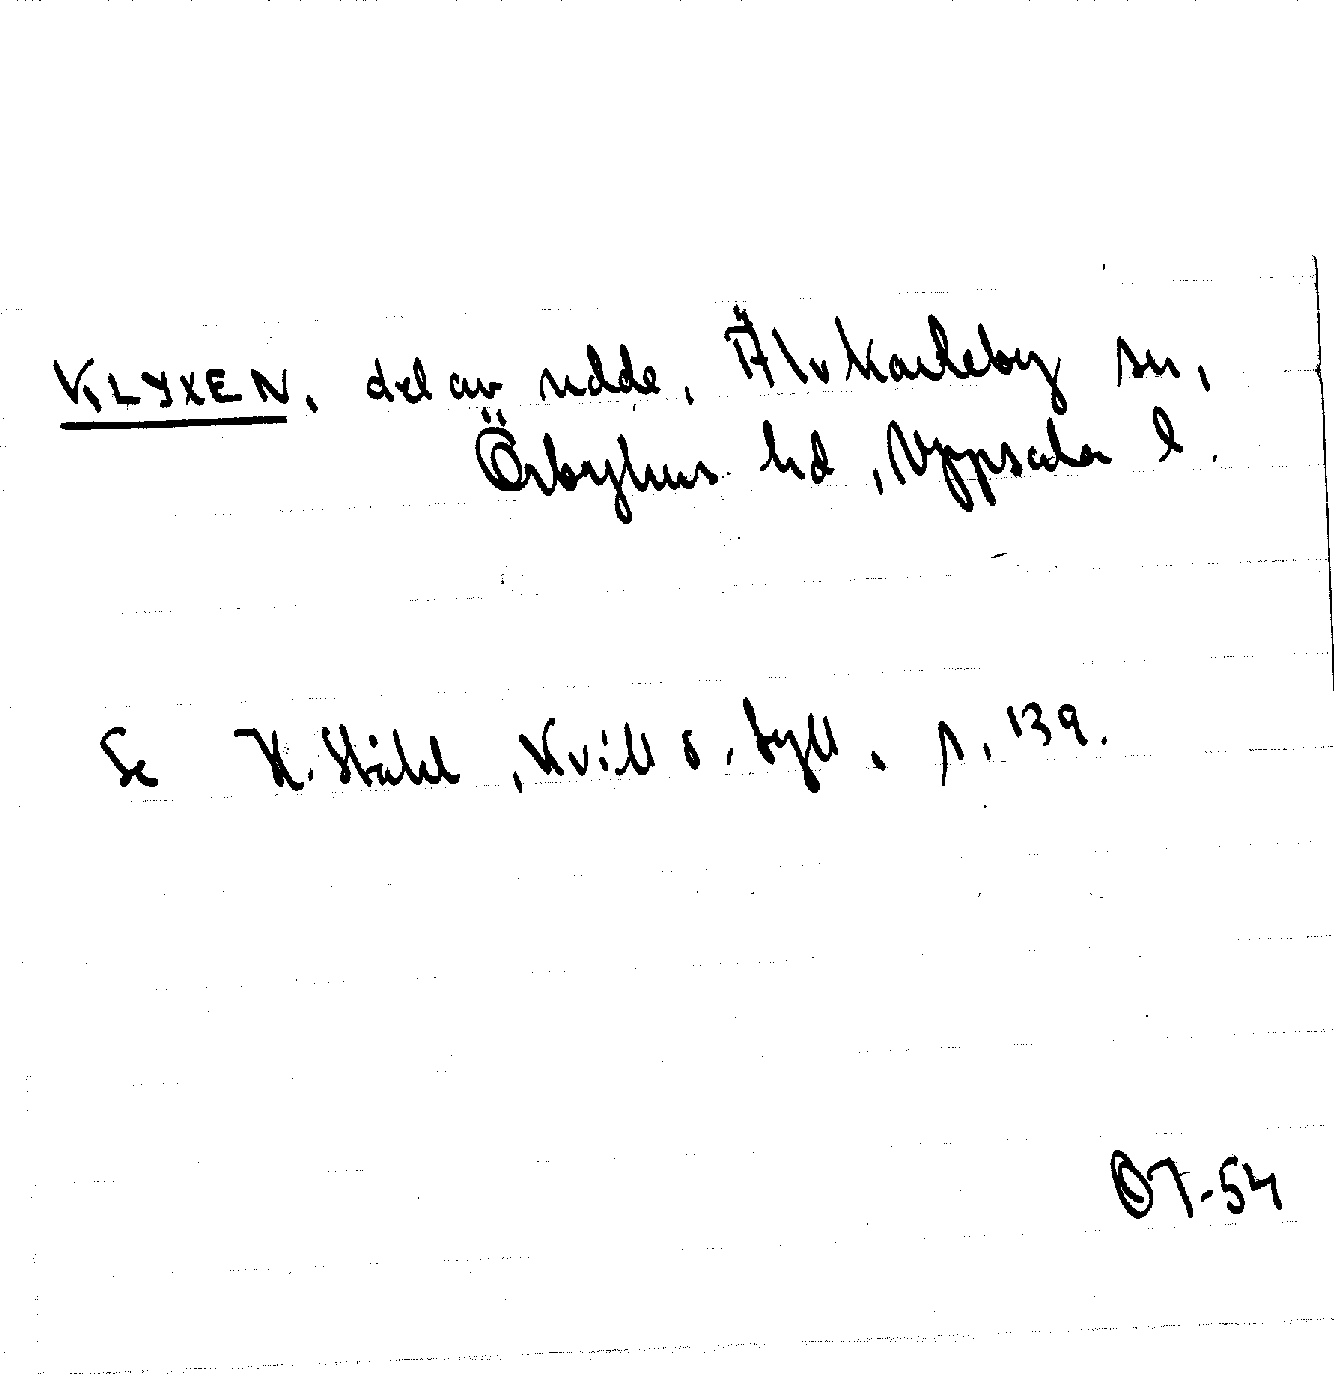 KLYXEN, del av udde, Älvkarleby sn,
Örbyhus hd, Uppsala l.
Se H. Ståhl, Kvill o. tyll, s. 139.
OT-54